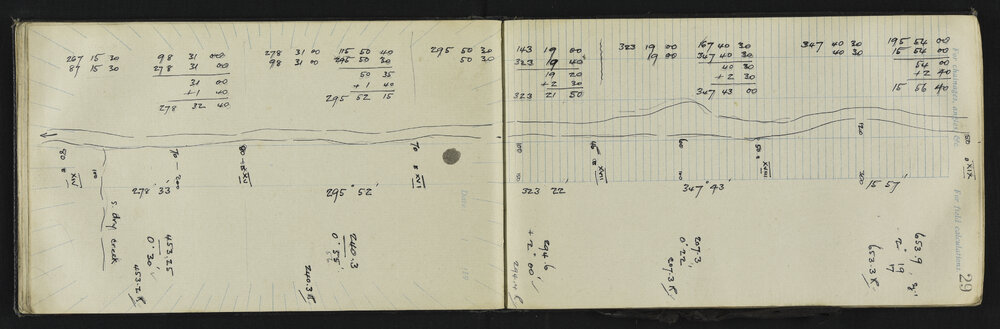 267 15 30
87 15 30
98 31 00
278 31 00
31 00
+1 40
278 32 40
278 31 00
98 31 00
115 50 40
295 50 30
50 35
+1 40
295 52 15
295 50 30
50 30
80
XIV
100
S. dry creek
70 - 200
80
XV
70
XVI
278° 33'
295° 52'
453.25
0° 30'
453.2
240.3
0° 55'
240.3
143 19 00
323 19 40
19 20
+2 30
323 21 50
323 19 00
19 00
167 40 30
347 40 30
40 30
+2 30
347 43 00
347 40 30
40 30
195 54 00
15 54 00
54 00
+2 40
15 56 40
For chainages, angles &c
100
XVII
60
100
50
XVIII
120
200
50
XIX
323 22'
347° 43'
15° 57'
294.6
+2° 00'
207.3
0° 22'
207.3
653.9
653.3
For field calculations
29